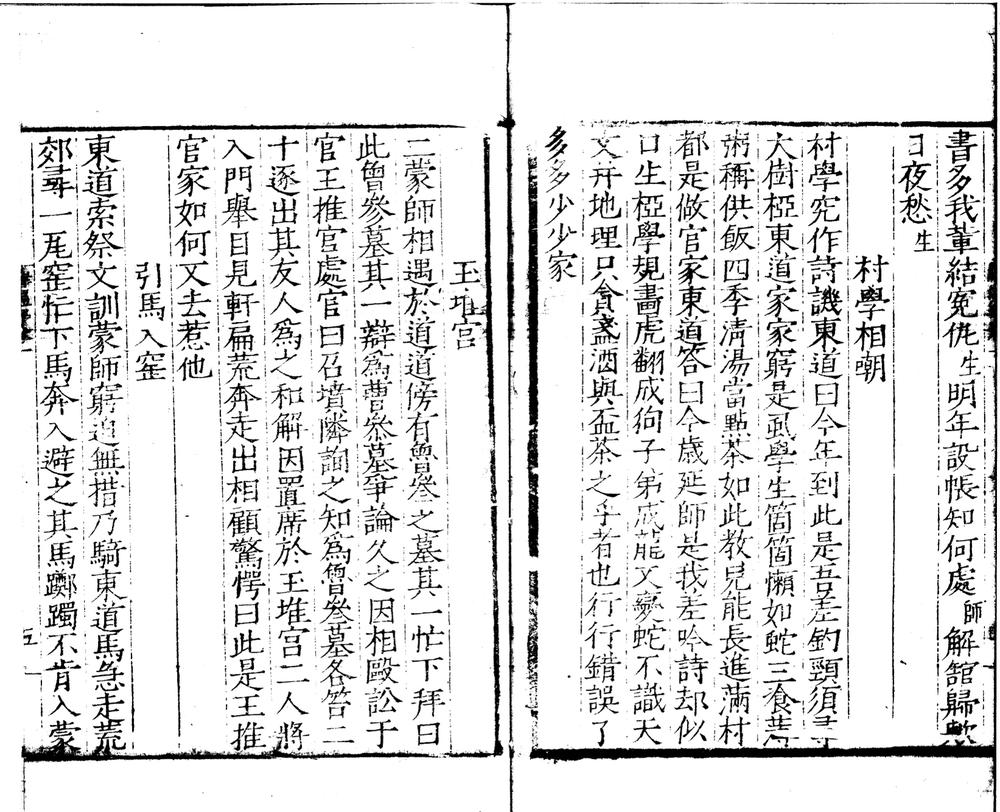 書多我輩結冤仇生明年設帳知何處師解館歸歟
日夜愁生
村學相嘲
村學究作詩譏東道曰今年到此是吾差鈎頸須尋
大樹椏東道家家窮是虱學生箇箇懶如蛇三飡薄
粥稱供飯四季清湯當點茶如此教兒能長進滿村
都是做官家東道答曰今歲延師是我差吟詩却似
口生椏學規畫虎翻成狗子弟成龍又變蛇不識天
文并地理只貪盞酒與盃茶之乎者也行行錯誤了
多多少少家
王堆宫
二蒙師相遇於道道傍有魯參之墓其一忙下拜曰
此魯參墓其一辯爲曹參墓爭論久之因相毆訟于
官王推官處官曰召墳隣詢之知爲魯參墓各笞二
十逐出其友人爲之和解因置席於王堆宫二人將
入門舉目見軒扁荒奔走出相顧驚愕曰此是王推
官家如何又去惹他
引馬入窑
東道索祭文訓蒙師窮迫無措乃騎東道馬急走荒
郊尋一瓦窑忙下馬奔入避之其馬躑躅不肯入蒙
五